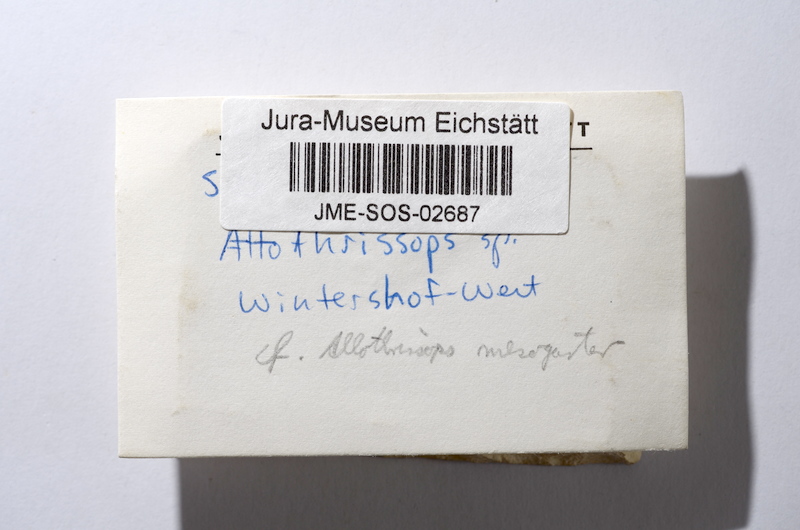 Jura-Museum Eichstätt
T
JME-SOS-02687
S
Allothrissops sp.
Wintershof-West
cf. Allothrissops mesogaster